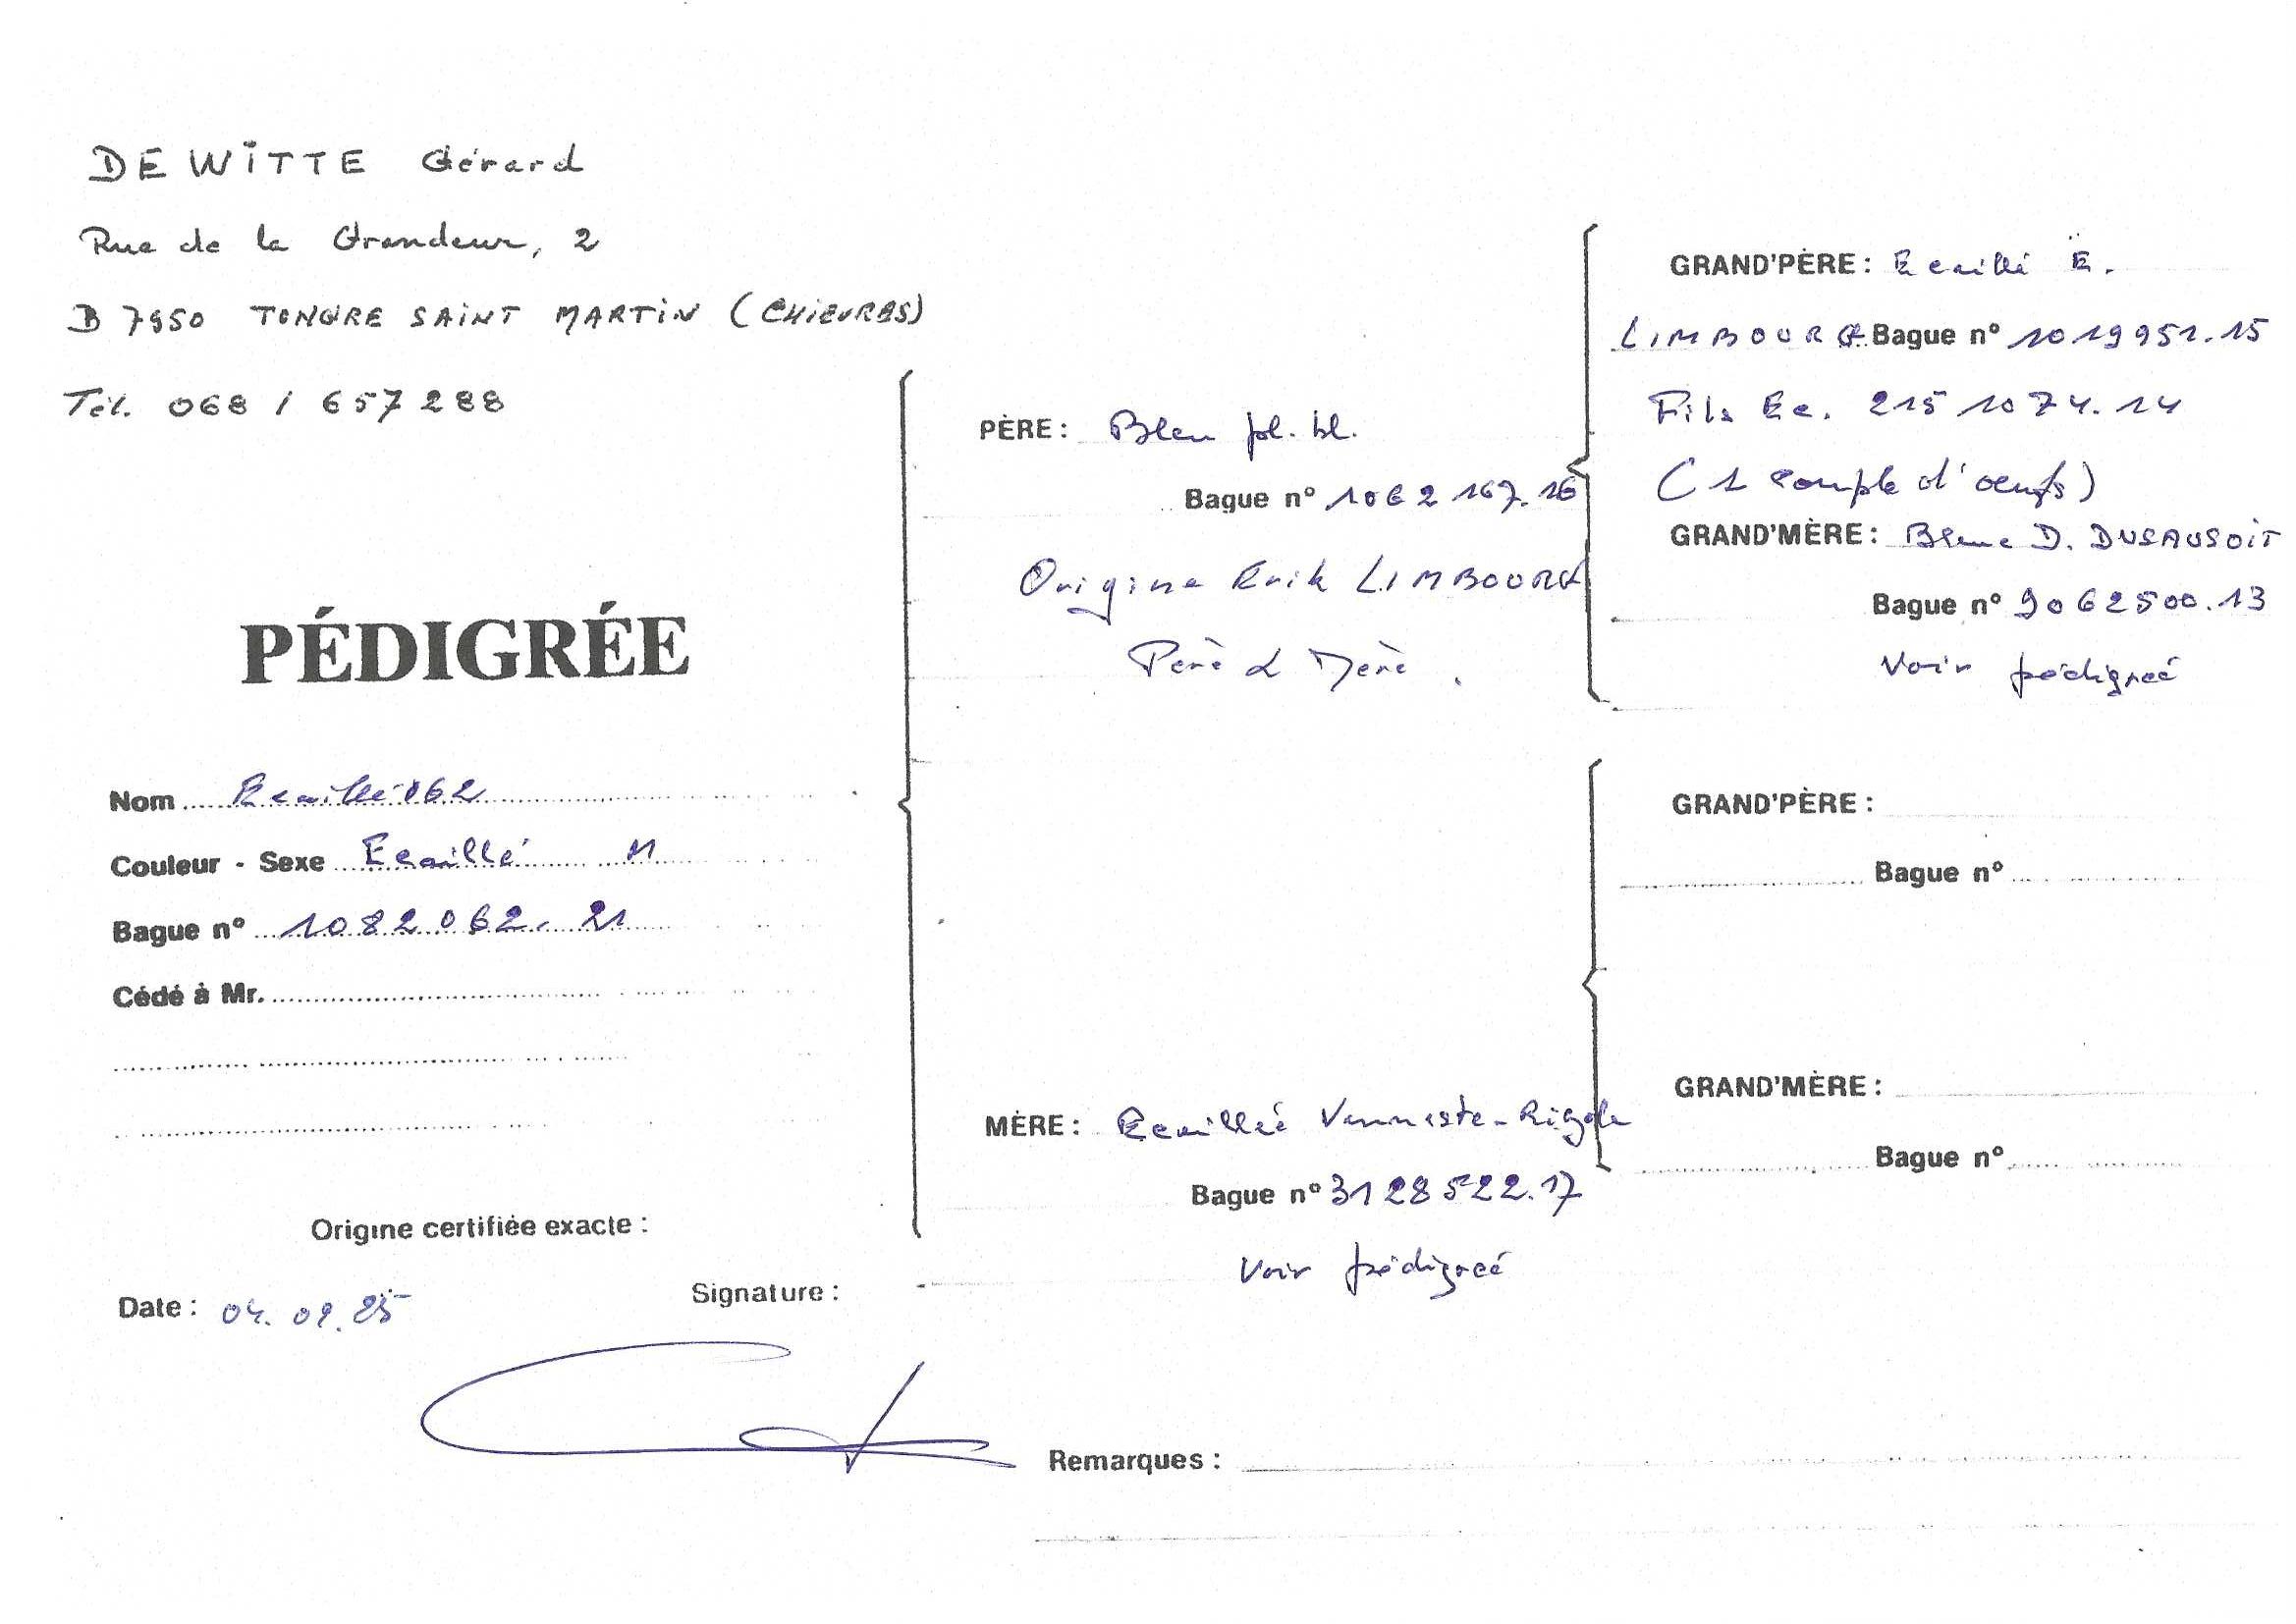 DE WITTE Gérard
Rue de la Grandeur, 2
B 7950 TONGRE SAINT MARTIN (CHIEVRES)
Tél. 068 / 657288
PÉDIGRÉE
Nom Ecaillé 062
Couleur - Sexe Ecaillé M
Bague n° 1082062. 21
Cédé à Mr.
Origine certifiée exacte :
Date : 04. 09. 25
Signature :
PÈRE : Bleu pl. bl.
Bague n° 1062167.16
Origine Erik LIMBOURG
Père & Mère .
MÈRE : Ecaillée Vanneste-Rigole
Bague n° 3128522.17
Voir pédigreé
GRAND'PÈRE : Ecaillé E.
LIMBOURG Bague n° 1019951.15
Fils Ec. 2151074.14
(1 couple d'oeufs)
GRAND'MÈRE : Bleue D. DUSAUSOIT
Bague n° 9062500.13
Voir pédigreé
GRAND'PÈRE :
Bague n°
GRAND'MÈRE :
Bague n°
Remarques :